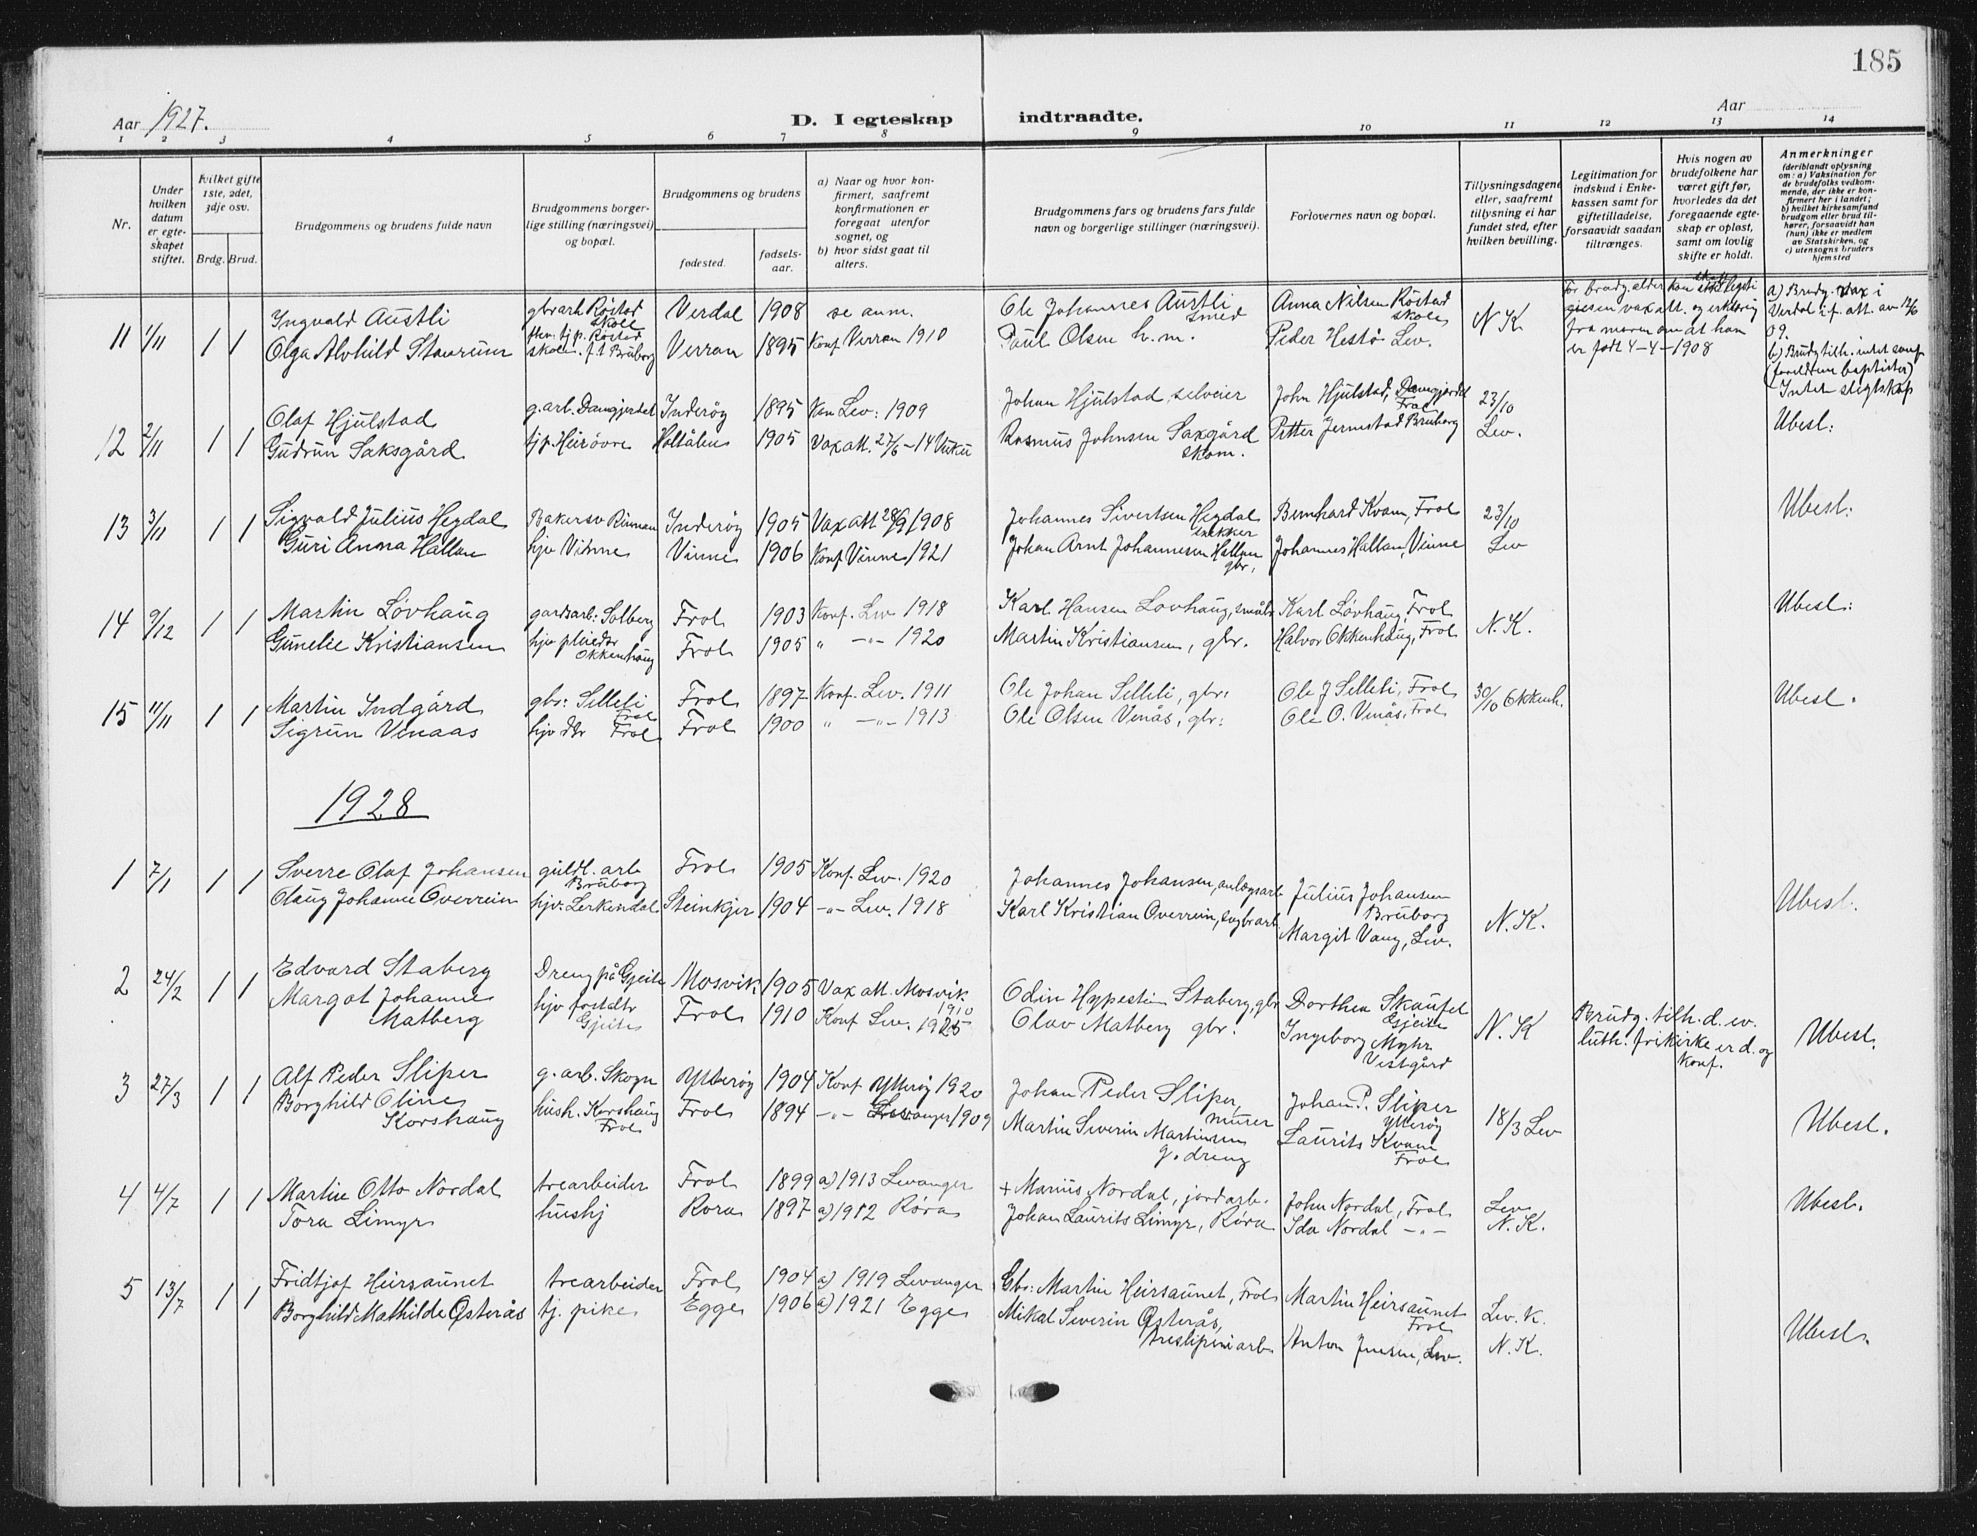 185
Aar 1927.
D. I egteskap indtraadte.
Aar
1 2 3 4 5 6 7 8 9 10 11 12 13 14
Nr.
Under hvilken datum er egteskapet stiftet.
Hvilket gifte 1ste, 2det, 3dje osv.
Brdg. Brud.
Brudgommens og brudens fulde navn
Brudgommens borgerlige stilling (næringsvei) og bopæl.
Brudgommens og brudens
fødested.
fødselsaar.
a) Naar og hvor konfirmert, saafremt konfirmationen er foregaat utenfor sognet, og
b) hvor sidst gaat til alters.
Brudgommens fars og brudens fars fulde navn og borgerlige stillinger (næringsvei).
Forlovernes navn og bopæl.
Tillysningsdagene eller, saafremt tillysning ei har fundet sted, efter hvilken bevilling.
Legitimation for indskud i Enkekassen samt for giftetilladelse, forsaavidt saadan tiltrænges.
Hvis nogen av brudefolkene har været gift før, hvorledes da det foregaaende egteskap er opløst, samt om lovlig skifte er holdt.
Anmerkninger (deriblandt oplysning om: a) Vaksination for de brudefolks vedkommende, der ikke er konfirmert her i landet; b) hvilket kirkesamfund brudgom eller brud tilhører, forsaavidt han (hun) ikke er medlem av Statskirken, og c) utensogns bruders hjemsted
11 1/11 1 1 Ingvald Austli gbrarb. Röstad skole Verdal 1908 se anm. Ole Johannes Austli smed Anna Nilsen Röstad skole N K
Olga Alvhild Staurum tj. p. Röstad skole f.t. Bruborg Verran 1895 Konf Verran 1910 Paul Olsen h.m. Peder Hestö Lev.
for brudg. alder kan skaffes
vaxatt. og erklæring
fra moren om at han
er født 4-4-1908
a) Brudg. vax i
Verdal i.f. att. av 12/6
09.
b) Brudg tilh. intet samf
(foreldrene baptister)
Intet slegtskap
12 2/11 1 1 Olaf Hjulstad g.arb. Damgjerdet Inderöy 1895 Kon Lev: 1909 Johan Hjulstad, selveier John Hjulstad, Damgjerdet Frol 23/10
Gudrun Saksgård tjp. Heirövre Holtålen 1905 Vaxatt. 27/6-14 Vuku Rasmus Johnsen Saxgård skom. Petter Jermstad Bruborg Lev. Ubesl:
13 3/11 1 1 Sigvald Julius Heydal Bakersv Rinnan Inderöy 1905 Vax att 28/9 1908 Johannes Sivertsen Heydal snekker Bernhard Kvam, Frol 23/10 Ubesl:
Guri Anna Hallan hjv Vinne Vinne 1906 Konf Vinne 1921 Johan Arnt Johannesen Hallan gbr. Johannes Hallan, Vinne Lev
14 9/12 1 1 Martin Lövhaug gardsarb: Solberg Frol 1903 Konf. Lev 1918 Karl Hansen Lovhaug, småbr Karl Lövhaug, Frol N. K. Ubesl:
Gunelie Kristiansen hjv pleiedtr Okkenhaug Frol 1905 " -"- 1920 Martin Kristiansen, gbr. Halvor Okkenhaug, Frol
15 11/11 1 1 Martin Indgård gbs: Silleli Frol Frol 1897 Konf. Lev. 1911 Ole Johan Silleli, gbr: Ole J Silleli, Frol 30/10 Okkenh. Ubesl.
Sigrun Venaas hjv dtr Frol Frol 1900 " -"- 1913 Ole Olsen Venås, gbr: Ole O. Venås, Frol
1928
1 7/1 1 1 Sverre Olaf Johansen guldl. arb Bruborg Frol 1905 Konf. Lev. 1920 Johannes Johansen, anlægsarb Julius Johansen Bruborg
Olaug Johanne Overrein hjv. Lerkendal Steinkjer 1904 -"- Lev. 1918 Karl Kristian Overrein, sagbrarb Margit Vang, Lev. N. K. Ubesl.
2 24/2 1 1 Edvard Staberg Dreng på Gjeite Mosvik 1905 Vax att. Mosvik 1910 Odin Hypestin Staberg, gbr Dorthea Skaufel Gjeite N. K
Margot Johanne Matberg hjv fostdtr Gjeite Frol 1910 Konf Lev. 1925 Olav Matberg gbr. Ingeborg Myhr Vestgård
Brudg. tilh. d. ev.
luth. frikirke er d. og
konf. Ubesl.
3 27/3 1 1 Alf Peder Sliper g. arb. Skogn Ytterøy 1904 Konf Ytterøy 1920 Johan Peder Sliper, murer Johan P. Sliper Ytterøy 18/3 Lev
Borghild Oline Korshaug hush. Korshaug Frol Frol 1894 -"- Levanger 1909 Martin Severin Martinsen g. dreng Laurits Kvam Frol Ubesl.
4 4/7 1 1 Martin Otto Nordal trearbeider Frol 1899 a) 1913 Levanger + Marius Nordal, jordarb. John Nordal, Frol Lev Ubesl.
Tora Limyr hushj Røra 1897 a) 1912 Røra Johan Laurits Limyr, Røra Ida Nordal -"- N. K.
5 13/7 1 1 Fridtjof Heirsaunet trearbeider Frol 1904 a) 1919 Levanger Gbs: Martin Heirsaunet, Frol Martin Heirsaunet Frol Lev. K.
Borghild Mathilde Østerås tj. pike Egge 1906 a) 1921 Egge Mikal Severin Østerås, treslipeniarb Anton Jensen, Lev. N. K. Ubesl.